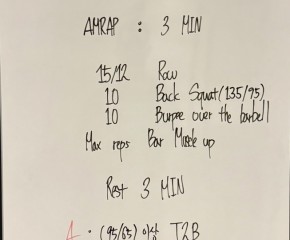 AMRAP : 3 MIN
15/12 Row
10 Back Squat (135/95)
10 Burpee over the barbell
Max reps Bar Muscle up
Rest 3 MIN
A. (95/65) T2B